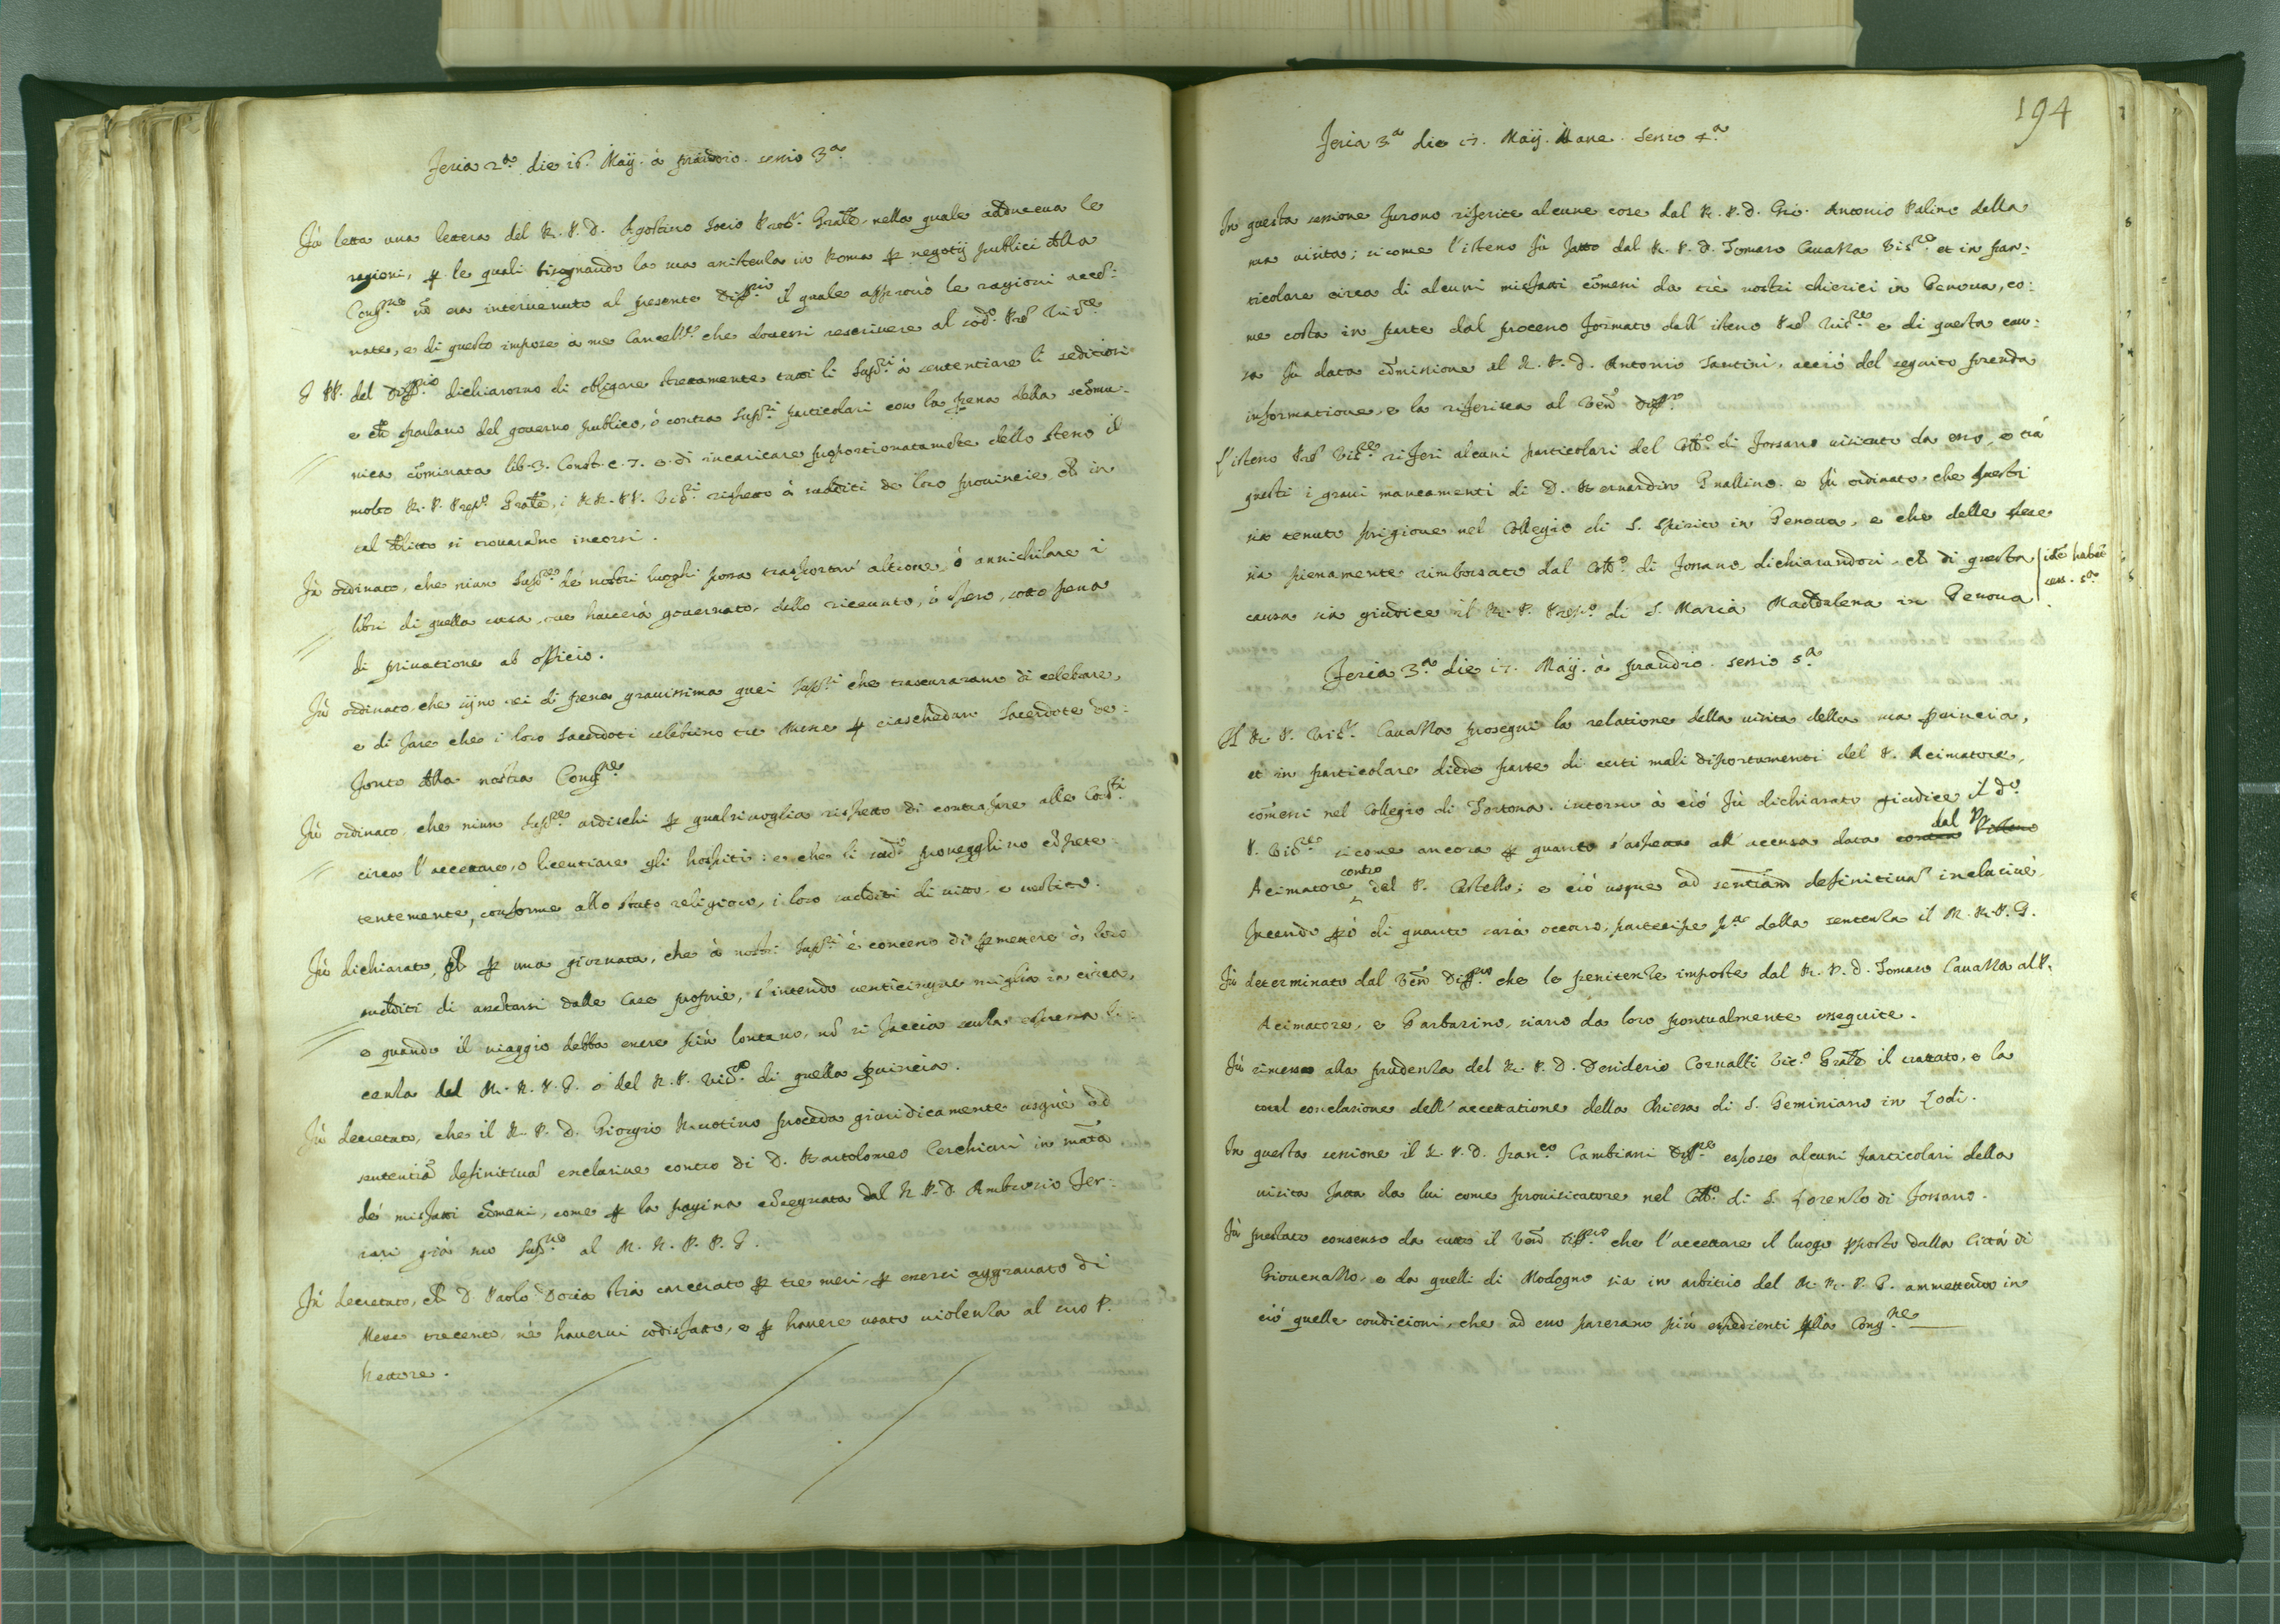 Feria 2.ª die 16. Maij. à prandio. sessio 3.ª
Fù letta una lettera del R. P. D. Agostino Socio Proc.r Gräle, nella quale adduceua le
ragioni, p le quali bisognando la sua assistenza in Roma p negotij publici della
Cong.ne nõ era interuenuto al presente Diff.rio il quale approuò le ragioni acce:
nate, e di questo impose à me Cancell.re che douessi rescriuere al sod.o Prẽ
I PP. del Diff.rio dichiarorno di obligare strettamente tutti li Sup.ri à sententiare li seditiosi
e chi parlano del gouerno publico, ò contra Sup.ri particolari con la pena della scõmu-
nica cõminata lib. 3. Const. c. 7. e di incaricare proportionatamẽte dello stesso il
molto R. P. Prep.o Gräle, i RR. PP. Vis.ri rispetto à sudditi de loro prouincie, chẽ in
tal delitto si trouarãno incorsi.
Fù ordinato, che niun Sup.re de nostri luoghi possa trasportar' altroue, ò annichilare i
libri di quella casa, oue hauerà gouernato, dello riceuuto, ò speso, sotto pena
di priuatione ab officio.
Fù ordinato che sijno rei di pena grauissima quei Sup.ri che trascuraranno di celebrare,
e di fare che i loro Sacerdoti celebrino tre Messe p ciaschedun Sacerdote de:
fonto della nostra Cong.ne
Fù ordinato, che niun Sup.re ardischi p qualsiuoglia rispetto di contrafare alle Cost.ni
circa l'accettare, o licentiare gli hospiti: e che li sud.i prouegghino cõpete:
tentemente, conforme allo stato religioso, i loro sudditi di vitto, e vestito.
Fù dichiarato, chẽ p una giornata, che à nostri Sup.ri è concesso di pmettere à loro
sudditi di assẽtarsi dalle Case proprie, s'intende venticinque miglia in circa,
e quando il viaggio debba essere più lontano, nõ si faccia senza espressa li-
cenza del M. R. P. G. ò del R. P. Vis.re di quella puincia.
Fù decretato, che il R. P. D. Giorgio proceda giuridicamente usque ad
sententiã definitiuã exclusiue contro di D. Bartolomeo Cerchiari in mat̃a
de' misfatti cõmessi, come p la pagina cõsegnata dal R. P. D. Ambrosio Fer:
rari già suo Sup.re al M. R. P. P. G.
Fù decretato, chẽ D. Paolo Doria stia carcerato p tre mesi, p essersi aggrauato di
Messe trecento, nè hauerui sodisfatto, e p hauere usato violenza al suo P.
Rettore.
194
Feria 3.ª die 17. Maij. Mane. Sessio 4.ª
In questa sessione furono riferite alcune cose dal R. P. D. Gio. Antonio Palino della
sua visita; sicome l'istesso fù fatto dal R. P. D. Tomaso Cauazza Vis.re et in par:
ticolare circa di alcuni misfatti cõmessi da trè nostri chierici in Genoua, co:
me costa in parte dal processo formato dall' istesso Prẽ Vis.re e di questa cau:
sa fù data cõmissione al R. P. D. Antonio Santini, acciò del seguito prenda
informatione, e la riferisca al Veñ. Diff.rio
L'istesso Prẽ Vis.re riferì alcuni particolari del Coll.o di Fossano visitato da esso, e trà
questi i graui mancamenti di D. Bernardino Gnallino. e fù ordinato, che questi
sia tenuto prigione nel Collegio di S. Spirito in Genoua, e che delle spese
sia pienamente rimborsato dal Coll.o di Fossano dichiarandosi, chẽ di questa
causa sia giudice il R. P. Prep.o di S. Maria Maddalena in Genoua
idẽ habet
sess. 5.ª
Feria 3.ª die 17. Maij. à prandio. sessio 5.ª
Il R. P. Vis.r Cauazza proseguì la relatione della visita della sua puincia,
et in particolare diede parte di certi mali diportamenti del P. Acimatore,
cõmessi nel Collegio di Tortona. intorno à ciò fù dichiarato giudice il d.o
P. Vis.re sicome ancora p quanto s'aspetta all' accusa data contra l'istesso dal P.
Acimatore contro del P. Castello; e ciò usque ad sentẽtiam definitiuã inclusiuè,
facendo pò di quanto sarà occorso, partecipe p.ª della sentenza il M. R. P. G.
Fù determinato dal Veñ. Diff.rio che le penitenze imposte dal R. P. D. Tomaso Cauazza al P.
Acimatore, e Garbarino, siano da loro pontualmente esseguite.
Fù rimesso alla prudenza del R. P. D. Desiderio Cornalti Vic.o Gräle il trattato, e la
total conclusione dell' accettatione della Chiesa di S. Geminiano in Lodi.
In questa sessione il R. P. D. Fran.co Cambiani Diff.re espose alcuni particolari della
visita fatta da lui come prouisitatore nel Coll.o di S. Lorenzo di Fossano.
Fù prestato consenso da tutto il Veñ. Diff.rio che l'accettare il luogo pposto dalla Città di
Giouenazzo, e da quelli di Modogno sia in arbitrio del M. R. P. G. ammettendo in
ciò quelle condicioni, che ad esso parerano più espedienti p la Cong.ne